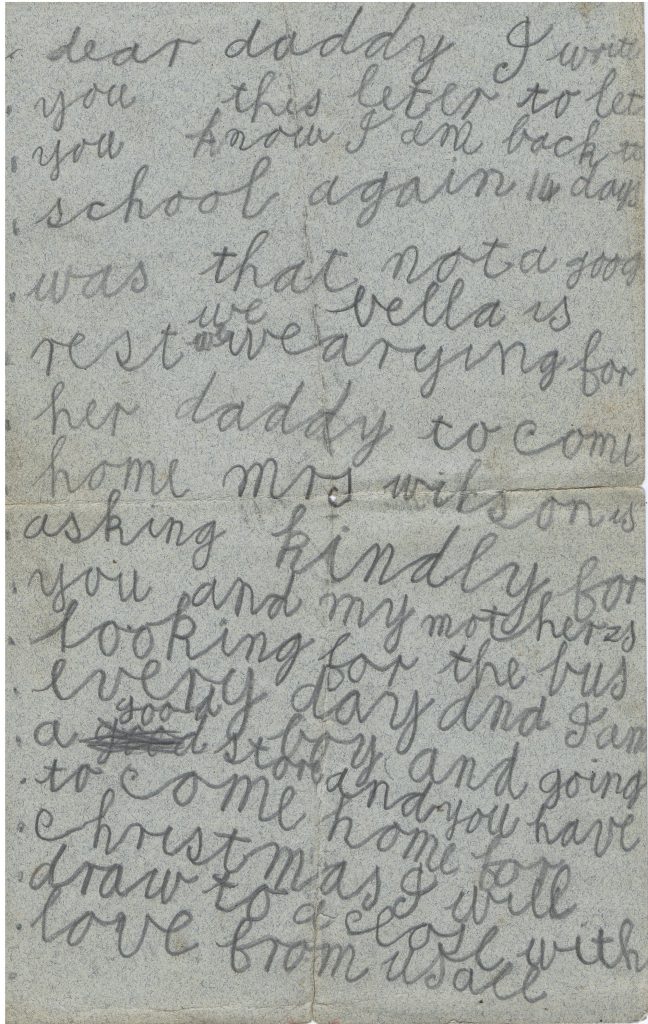 dear daddy I write
you this leter to let
you know I am back to
school again 14 days
was that not a good
we vella is
rest we wearying for
her daddy to come
home mrs wilson is
asking kindly for
you and my motherzs
looking for the bus
every day and I am
goold
a boy and going
to stop and you have
to come home for
christmas I will
draw to a close with
love from us all